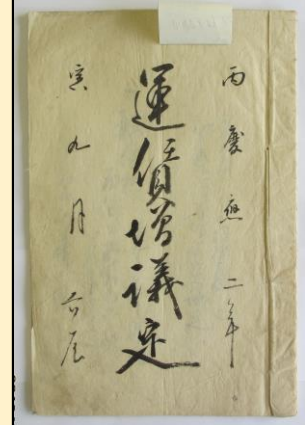 丙慶應二年
運賃増議定
寅九月